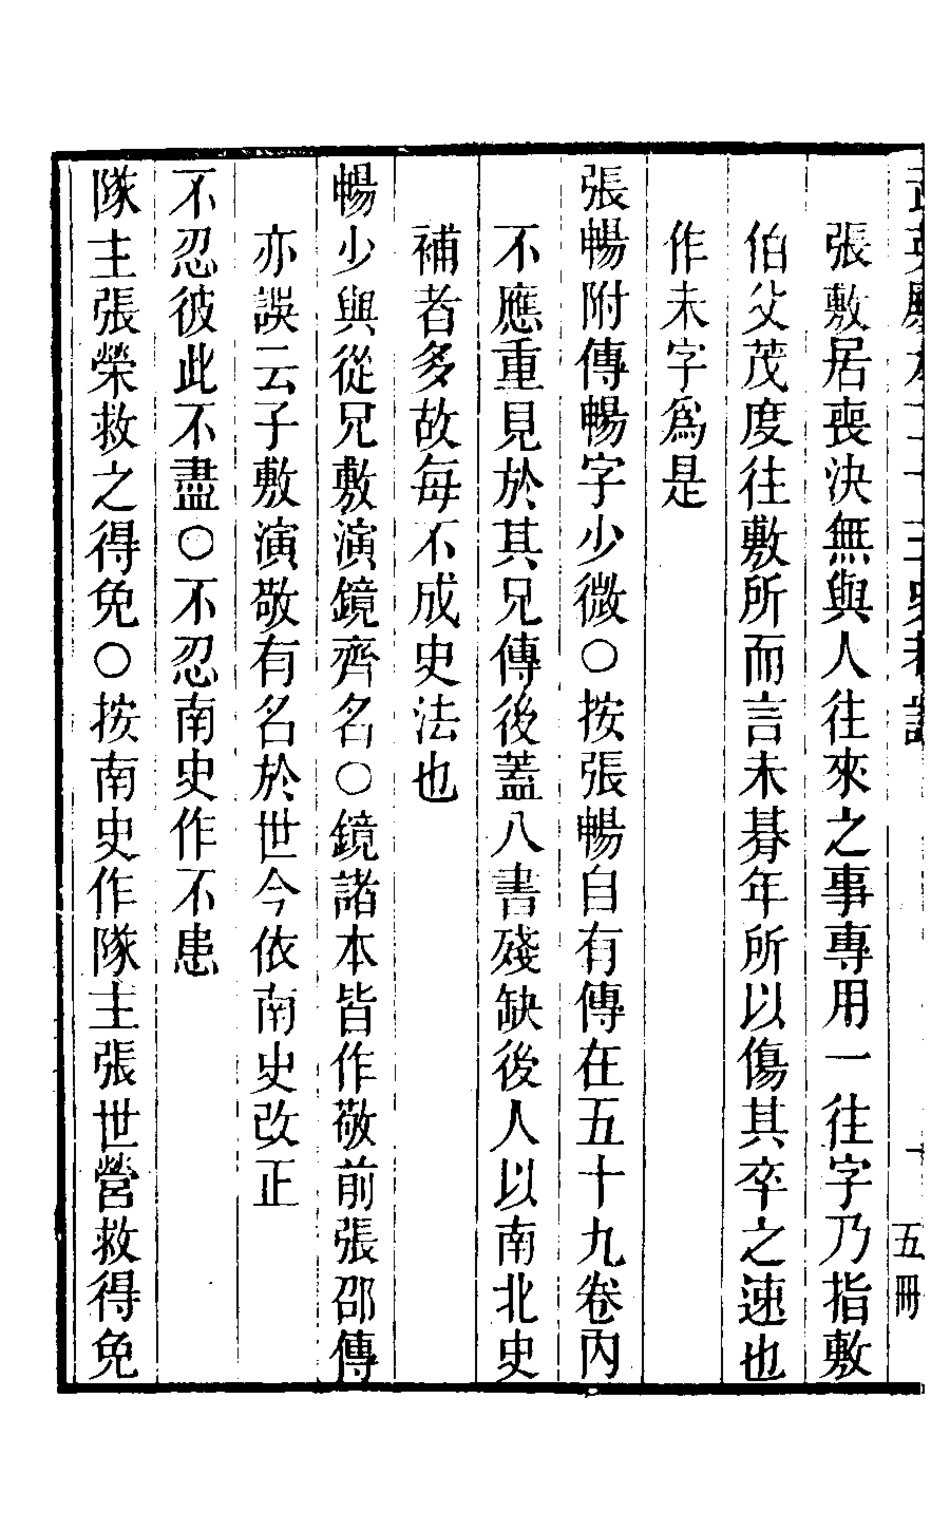 張敷居喪決無與人往來之事專用一往字乃指敷
伯父茂度往敷所而言未朞年所以傷其卒之速也
作未字爲是
張暢附傳暢字少微○按張暢自有傳在五十九卷內
不應重見於其兄傳後蓋八書殘缺後人以南北史
補者多故每不成史法也
暢少與從兄敷演鏡齊名○鏡諸本皆作敬前張邵傳
亦誤云子敷演敬有名於世今依南史改正
不忍彼此不盡○不忍南史作不患
隊主張榮救之得免○按南史作隊主張世營救得免
五冊